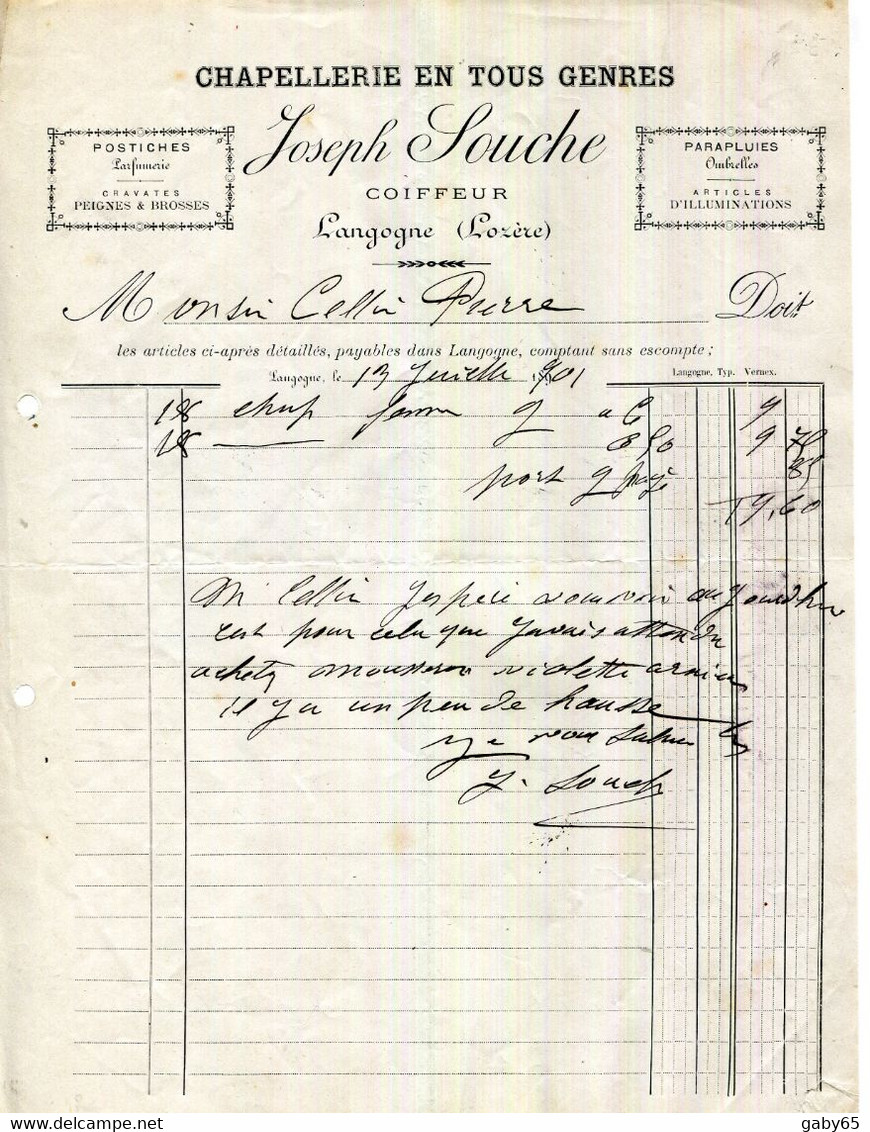 CHAPELLERIE EN TOUS GENRES
Joseph Souche
COIFFEUR
Langogne (Lozère)
POSTICHES
Parfumerie
CRAVATES
PEIGNES & BROSSES
PARAPLUIES
Ombrelles
ARTICLES
D'ILLUMINATIONS
Monsieur Cellier Pierre Doit
les articles ci-après détaillés, payables dans Langogne, comptant sans escompte;
Langogne, le 13 Juillet 1901
Langogne, Typ. Vernex.
1/8 chap 9 a 6 9
1/8 8 50 9 75
port 85
19,60
Mr Cellier J'espère vous voir aujourd'hui
c'est pour cela que J'avais attendu
acheté mousseron violette arnica
il y a un peu de hausse
Je vous salue
J. Souche
delcampe.net
gaby65